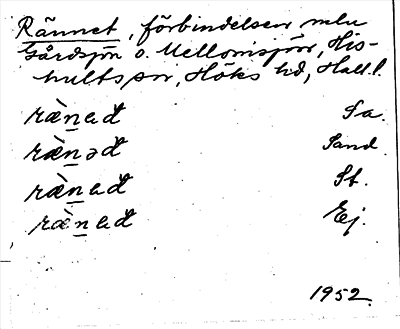 Rännet, förbindelsen mln
Gårdsjön o. Mellomsjön, His-
hults sn, Höks hd, Hall. l.
ræ̀na đ Sa.
ræ̀nəđ Sand
ræ̀nađ St.
ræ̀nađ Ej.
1952.